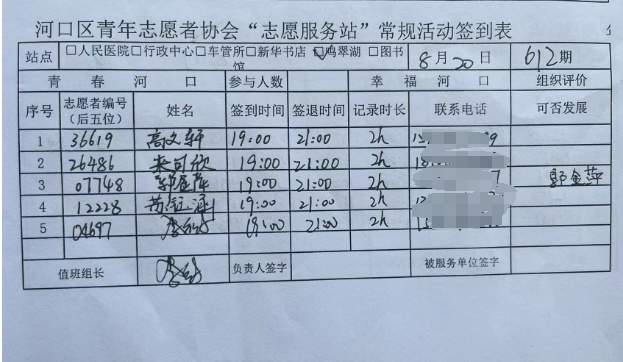 河口区青年志愿者协会“志愿服务站”常规活动签到表
站点 □人民医院□行政中心□车管所□新华书店□鸣翠湖□图书馆 8月20日 612期
青春河口 参与人数 幸福河口 组织评价
序号 志愿者编号（后五位） 姓名 签到时间 签退时间 记录时长 联系电话 可否发展
1 36619 高文轩 19:00 21:00 2h
2 26486 来可欣 19:00 21:00 2h
3 07748 郭金萍 19:00 21:00 2h 郭金萍
4 12228 19:00 21:00 2h
5 04697 19:00 21:00 2h
值班组长 负责人签字 被服务单位签字